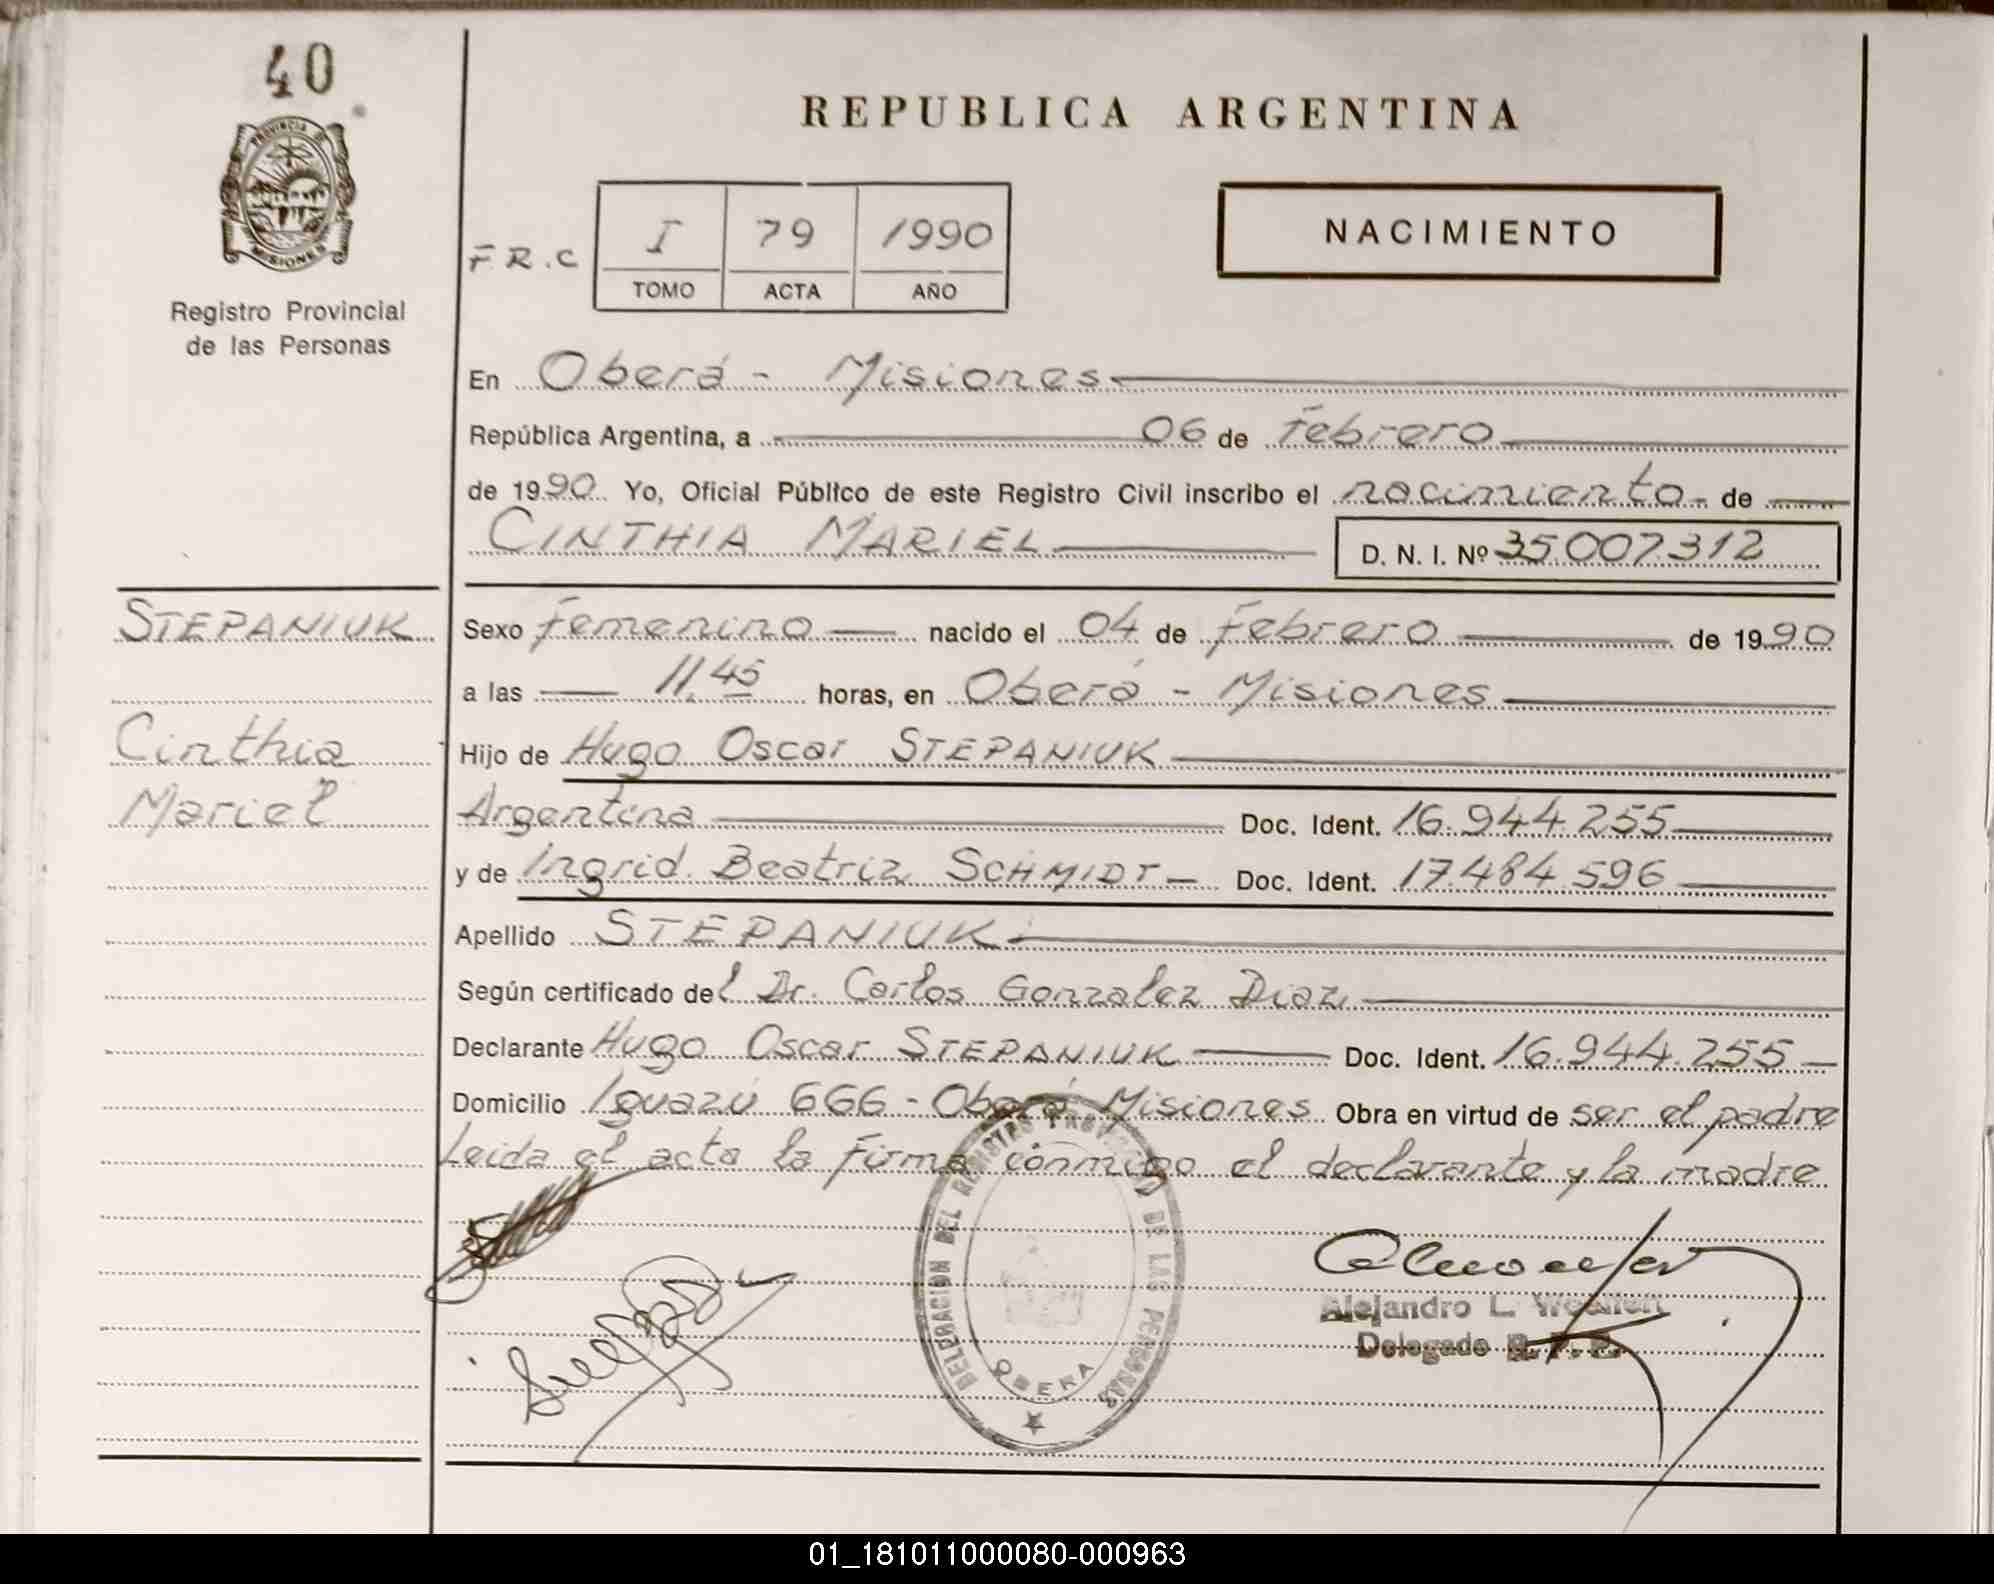 40
PROVINCIA DE
MISIONES
Registro Provincial
de las Personas
REPUBLICA ARGENTINA
F.R.C
I 79 1990
TOMO ACTA AÑO
NACIMIENTO
En Oberá - Misiones
República Argentina, a 06 de Febrero
de 1990 Yo, Oficial Público de este Registro Civil inscribo el nacimiento de
CINTHIA MARIEL D. N. I. Nº 35.007.312
STEPANIUK
Cinthia
Mariel
Sexo Femenino nacido el 04 de Febrero de 1990
a las 11.45 horas, en Oberá - Misiones
Hijo de Hugo Oscar STEPANIUK
Argentina Doc. Ident. 16.944.255
y de Ingrid Beatriz SCHMIDT Doc. Ident. 17.484.596
Apellido STEPANIUK
Según certificado del Dr. Carlos Gonzalez Diaz
Declarante Hugo Oscar STEPANIUK Doc. Ident. 16.944.255
Domicilio Iguazú 666 - Oberá Misiones Obra en virtud de ser el padre
Leida el acta la firma conmigo el declarante y la madre
DELEGACION DEL REGISTRO PROVINCIAL DE LAS PERSONAS
OBERA
Alejandro L.
Delegado R. P. P.
01_181011000080-000963